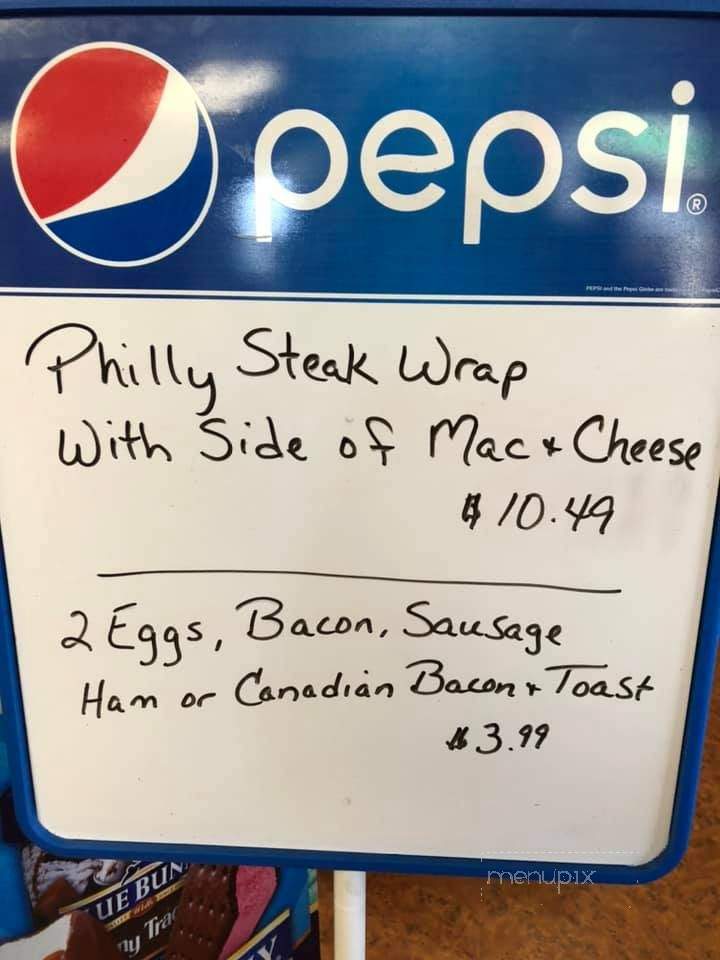 pepsi®
PEPSI and the Pepsi Globe are
Philly Steak Wrap
With Side of Mac + Cheese
$10.49
2 Eggs, Bacon, Sausage
Ham or Canadian Bacon + Toast
$3.99
menupix
UE BUN
ny Tra